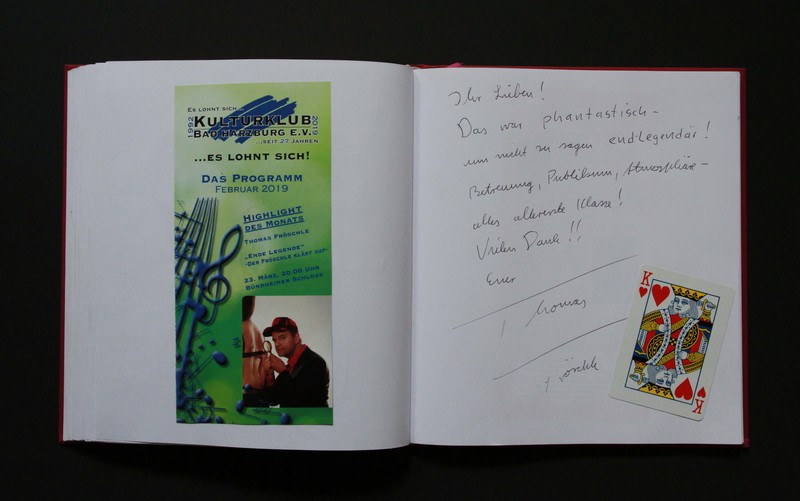 ES LOHNT SICH...
1992
KULTURKLUB
2019
BAD HARZBURG E.V.
...SEIT 27 JAHREN
...ES LOHNT SICH!
DAS PROGRAMM
FEBRUAR 2019
HIGHLIGHT
DES MONATS
THOMAS FRÖSCHLE
„ENDE LEGENDE"
-DER FRÖSCHLE KLÄRT AUF-
23. MÄRZ, 20.00 UHR
BÜNDHEIMER SCHLOSS
Ihr Lieben!
Das war phantastisch –
um nicht zu sagen endLegendär!
Betreuung, Publikum, Atmosphäre –
alles allererste Klasse!
Vielen Dank!!
Euer
Thomas
Fröschle
K
K